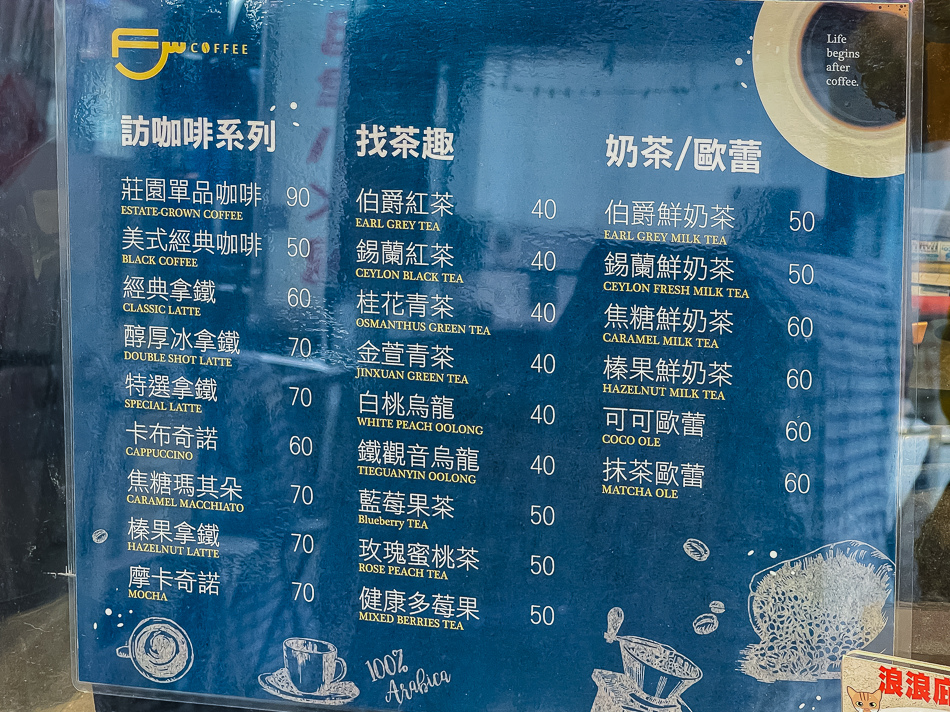 COFFEE
Life
begins
after
coffee.
訪咖啡系列
莊園單品咖啡 90
ESTATE-GROWN COFFEE
美式經典咖啡 50
BLACK COFFEE
經典拿鐵 60
CLASSIC LATTE
醇厚冰拿鐵 70
DOUBLE SHOT LATTE
特選拿鐵 70
SPECIAL LATTE
卡布奇諾 60
CAPPUCCINO
焦糖瑪其朵 70
CARAMEL MACCHIATO
榛果拿鐵 70
HAZELNUT LATTE
摩卡奇諾 70
MOCHA
找茶趣
伯爵紅茶 40
EARL GREY TEA
錫蘭紅茶 40
CEYLON BLACK TEA
桂花青茶 40
OSMANTHUS GREEN TEA
金萱青茶 40
JINXUAN GREEN TEA
白桃烏龍 40
WHITE PEACH OOLONG
鐵觀音烏龍 40
TIEGUANYIN OOLONG
藍莓果茶 50
Blueberry TEA
玫瑰蜜桃茶 50
ROSE PEACH TEA
健康多莓果 50
MIXED BERRIES TEA
奶茶/歐蕾
伯爵鮮奶茶 50
EARL GREY MILK TEA
錫蘭鮮奶茶 50
CEYLON FRESH MILK TEA
焦糖鮮奶茶 60
CARAMEL MILK TEA
榛果鮮奶茶 60
HAZELNUT MILK TEA
可可歐蕾 60
COCO OLE
抹茶歐蕾 60
MATCHA OLE
100%
Arabica
浪浪